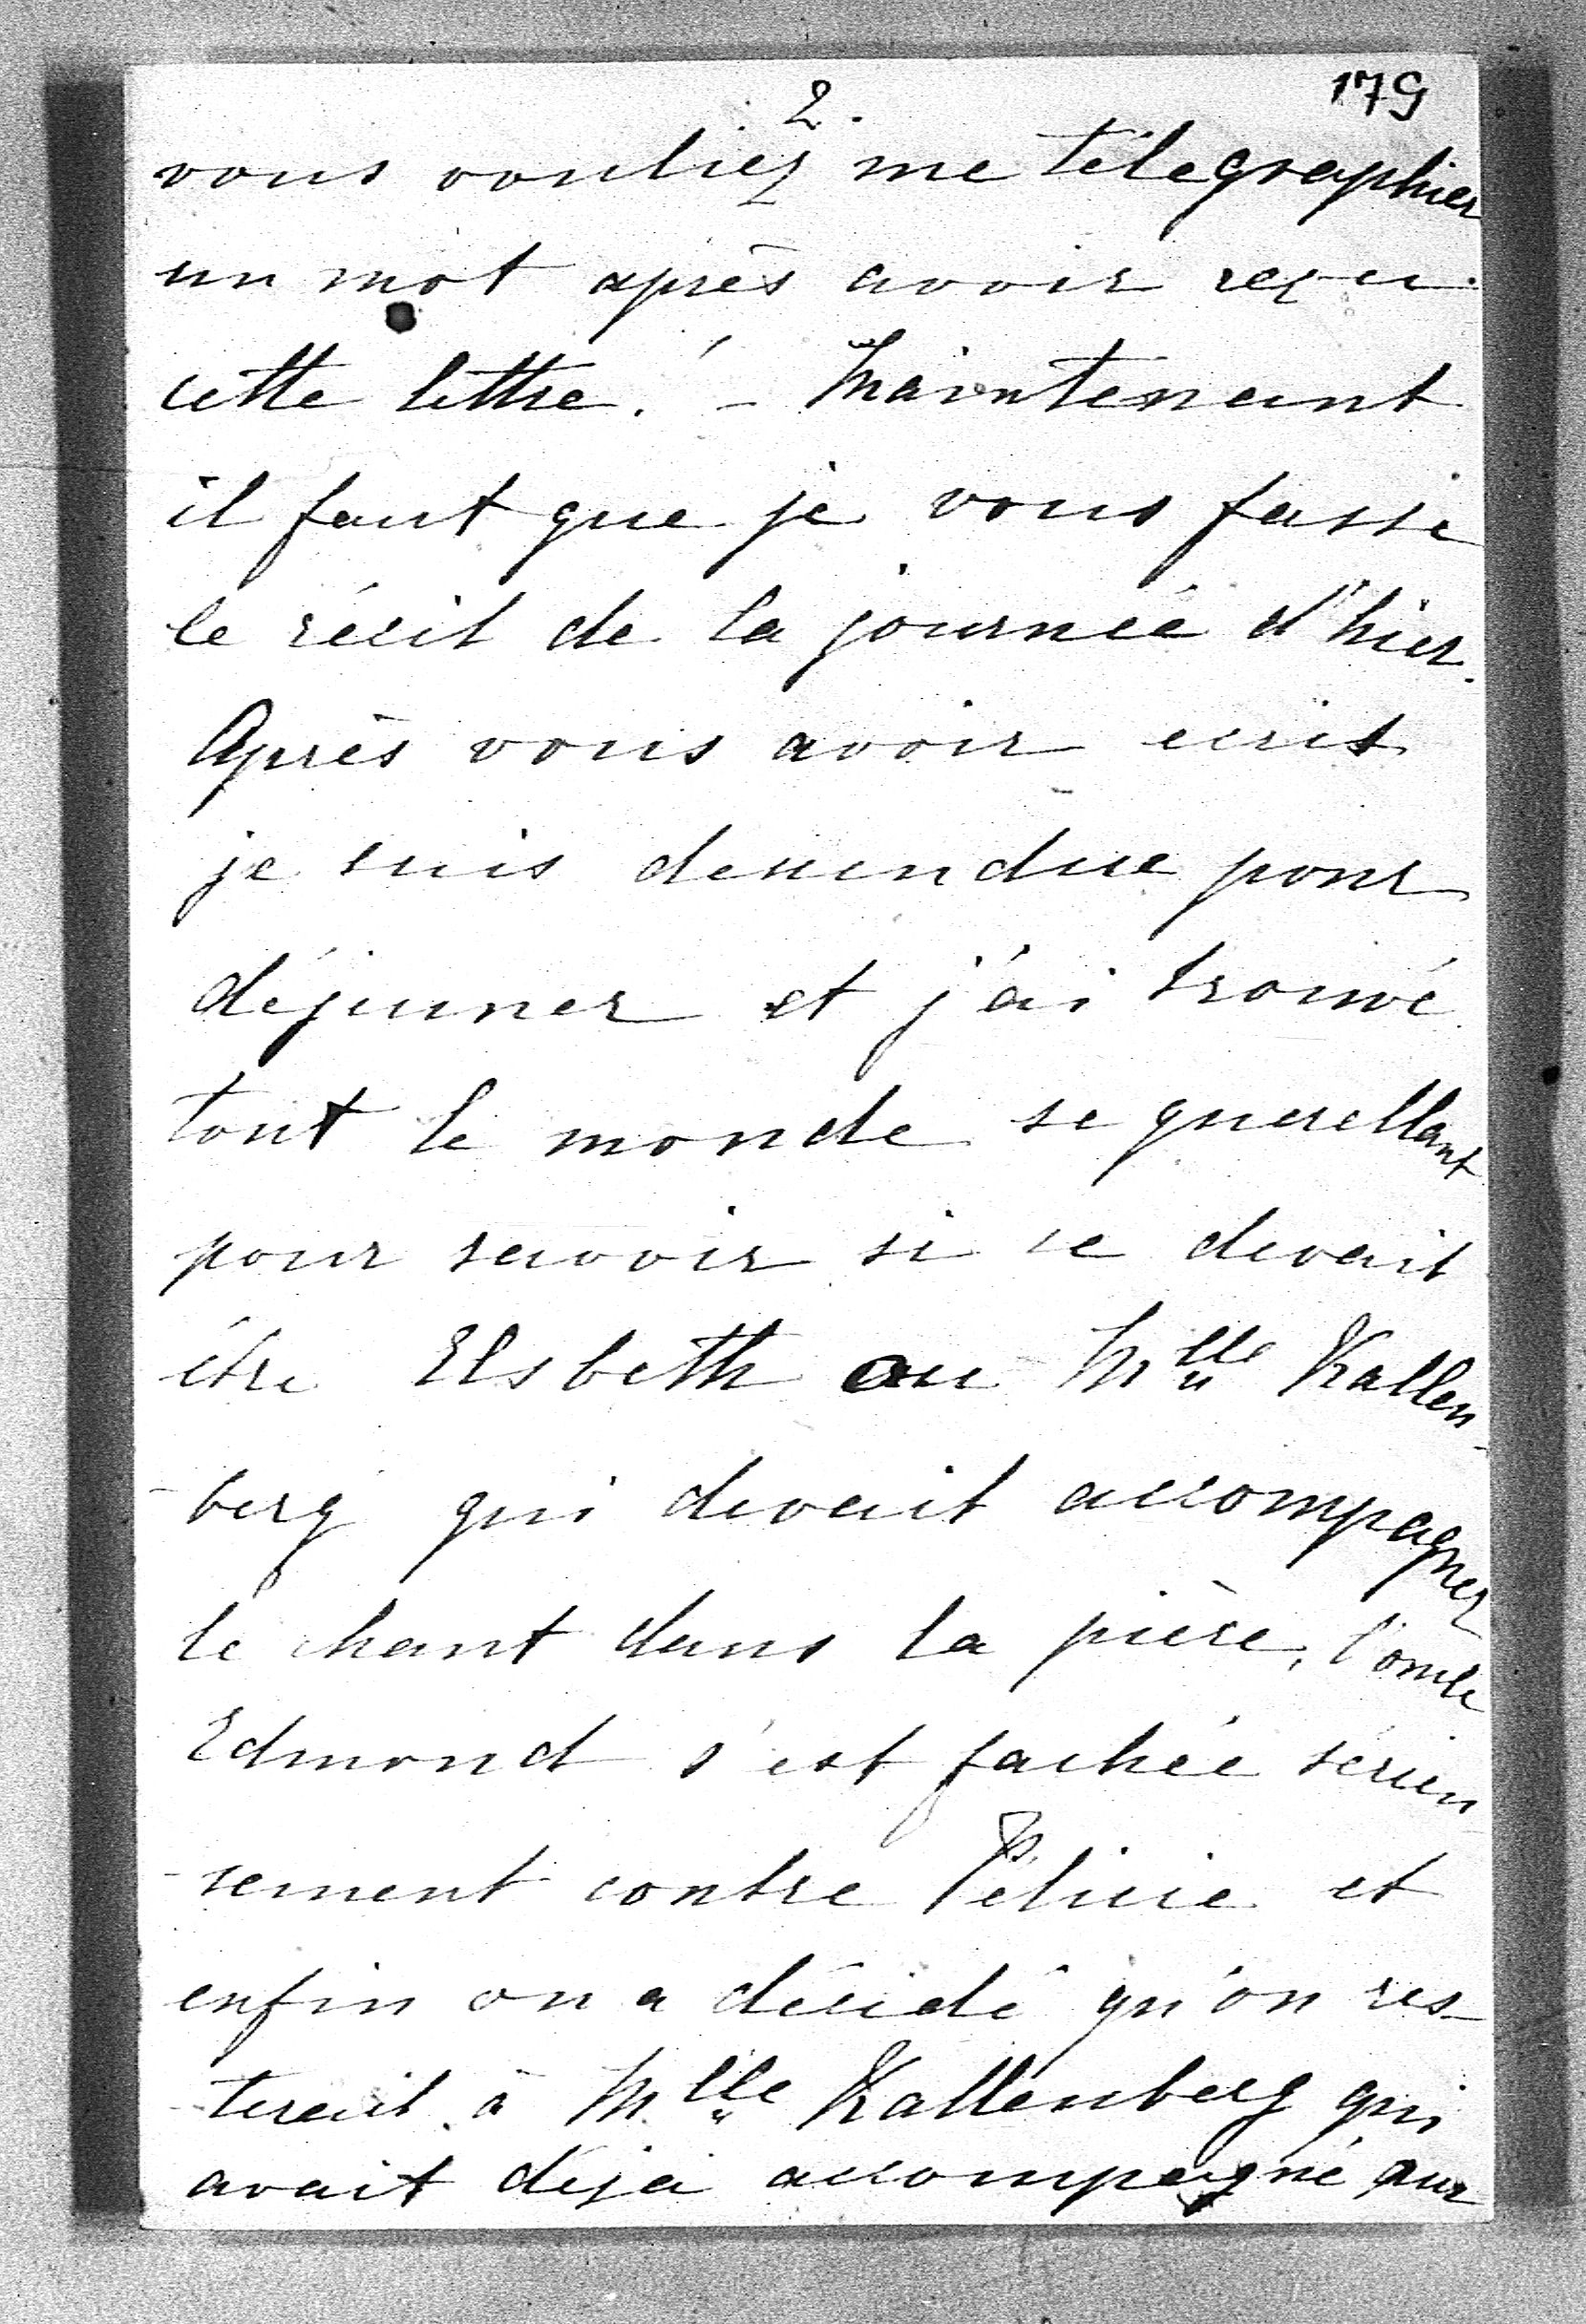 2.
179
vous vouliez me télegraphier
un mot après avoir reçu
cette lettre. - Maintenant
il faut que je vous fasse
le récit de la journée d'hier.
Après vous avoir ecrit
je suis descendue pour
déjeuner et j'ai trouvé
tout le monde se querellant
pour savoir si ce devait
être Elsbeth ou Mlle Kallen-
-berg qui devait accompagner
le chant dans la pièce, l'oncle
Edmond s'est fachée sérieu
-sement contre Félicie et
enfin on a décidé qu'on res-
terait à Mlle Kallenberg qui
avait déjà accompagné aux